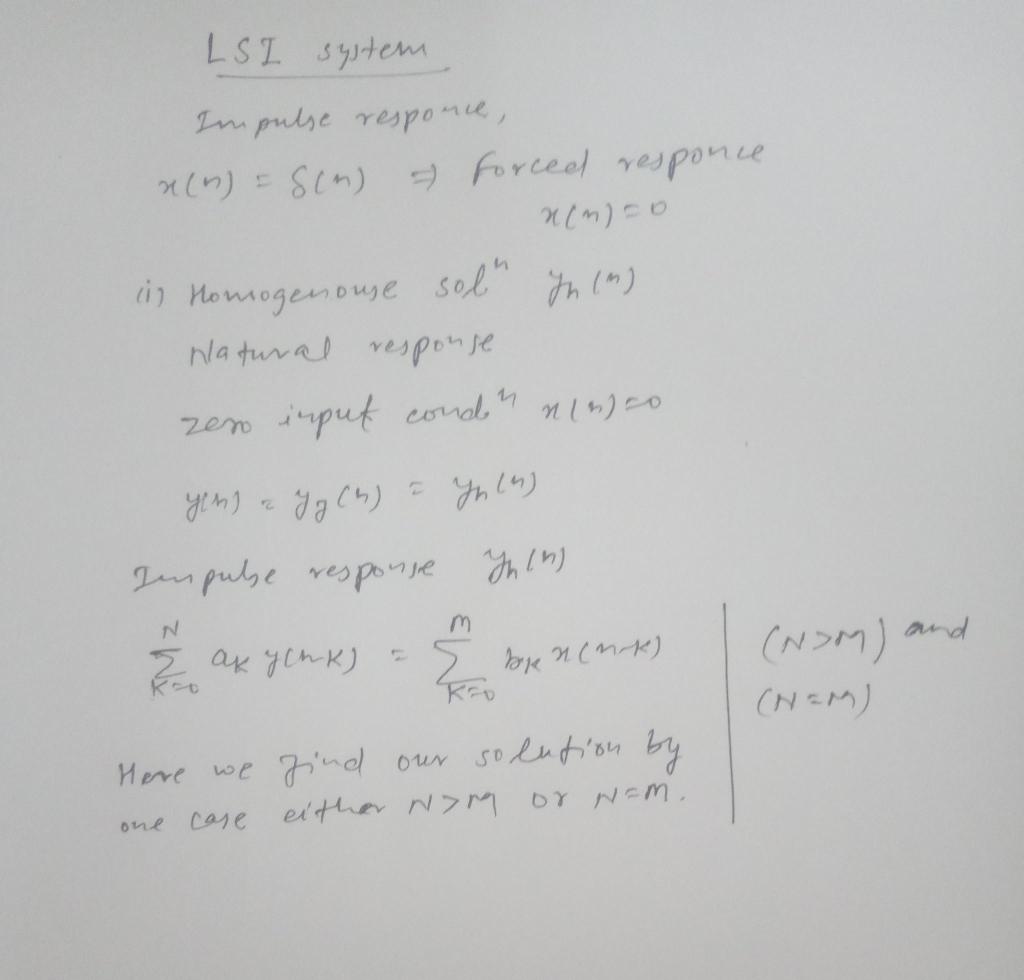 LSI system
Impulse responce,
x(n) = δ(n) ⇒ forced responce
x(n)=0
(i) Homogenouse solⁿ yh(n)
Natural response
zero input condⁿ x(n)=0
y(n) = yz(n) = yh(n)
Impulse response yh(n)
N M
Σ ak y(n-k) = Σ bk x(n-k) (N>M) and
K=0 K=0 (N=M)
Here we find our solution by
one case either N>M or N=M.